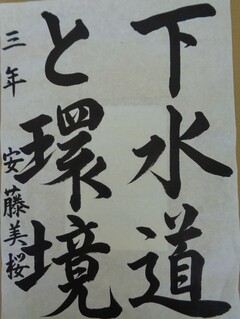 下水道
と環境
三年 安藤美桜